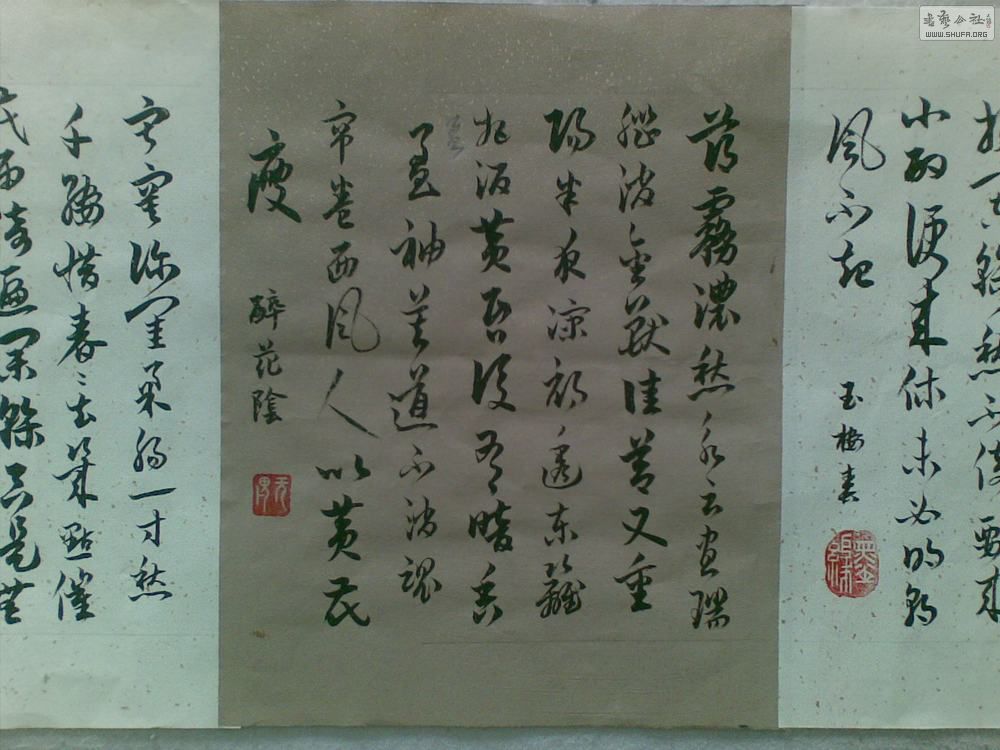 書藝公社
WWW.SHUFA.ORG
愁不倚要来
小酌便来休未必明朝
風不起
玉樓春
薄霧濃愁永云昼瑞
腦消金獸佳節又重
陽半夜涼初透東籬
把酒黄昏後有暗香
盈袖莫道不消魂
帘卷西風人以黄花
瘦
醉花陰
寂寞深閨柔腸一寸愁
千縷惜春々去幾點催
花雨倚遍闌幹只是無